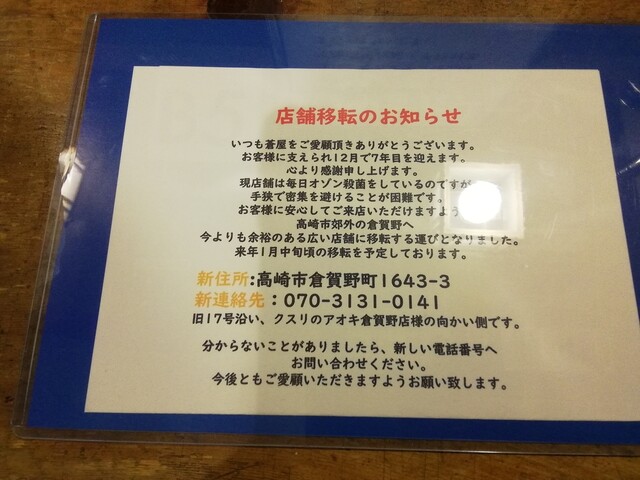 店舗移転のお知らせ
いつも蒼屋をご愛顧頂きありがとうございます。
お客様に支えられ12月で7年目を迎えます。
心より感謝申し上げます。
現店舗は毎日オゾン殺菌をしているのですが
手狭で密集を避けることが困難です。
お客様に安心してご来店いただけますよう
高崎市郊外の倉賀野へ
今よりも余裕のある広い店舗に移転する運びとなりました。
来年1月中旬頃の移転を予定しております。
新住所:高崎市倉賀野町1643-3
新連絡先：070-3131-0141
旧17号沿い、クスリのアオキ倉賀野店様の向かい側です。
分からないことがありましたら、新しい電話番号へ
お問い合わせください。
今後ともご愛顧いただきますようお願い致します。